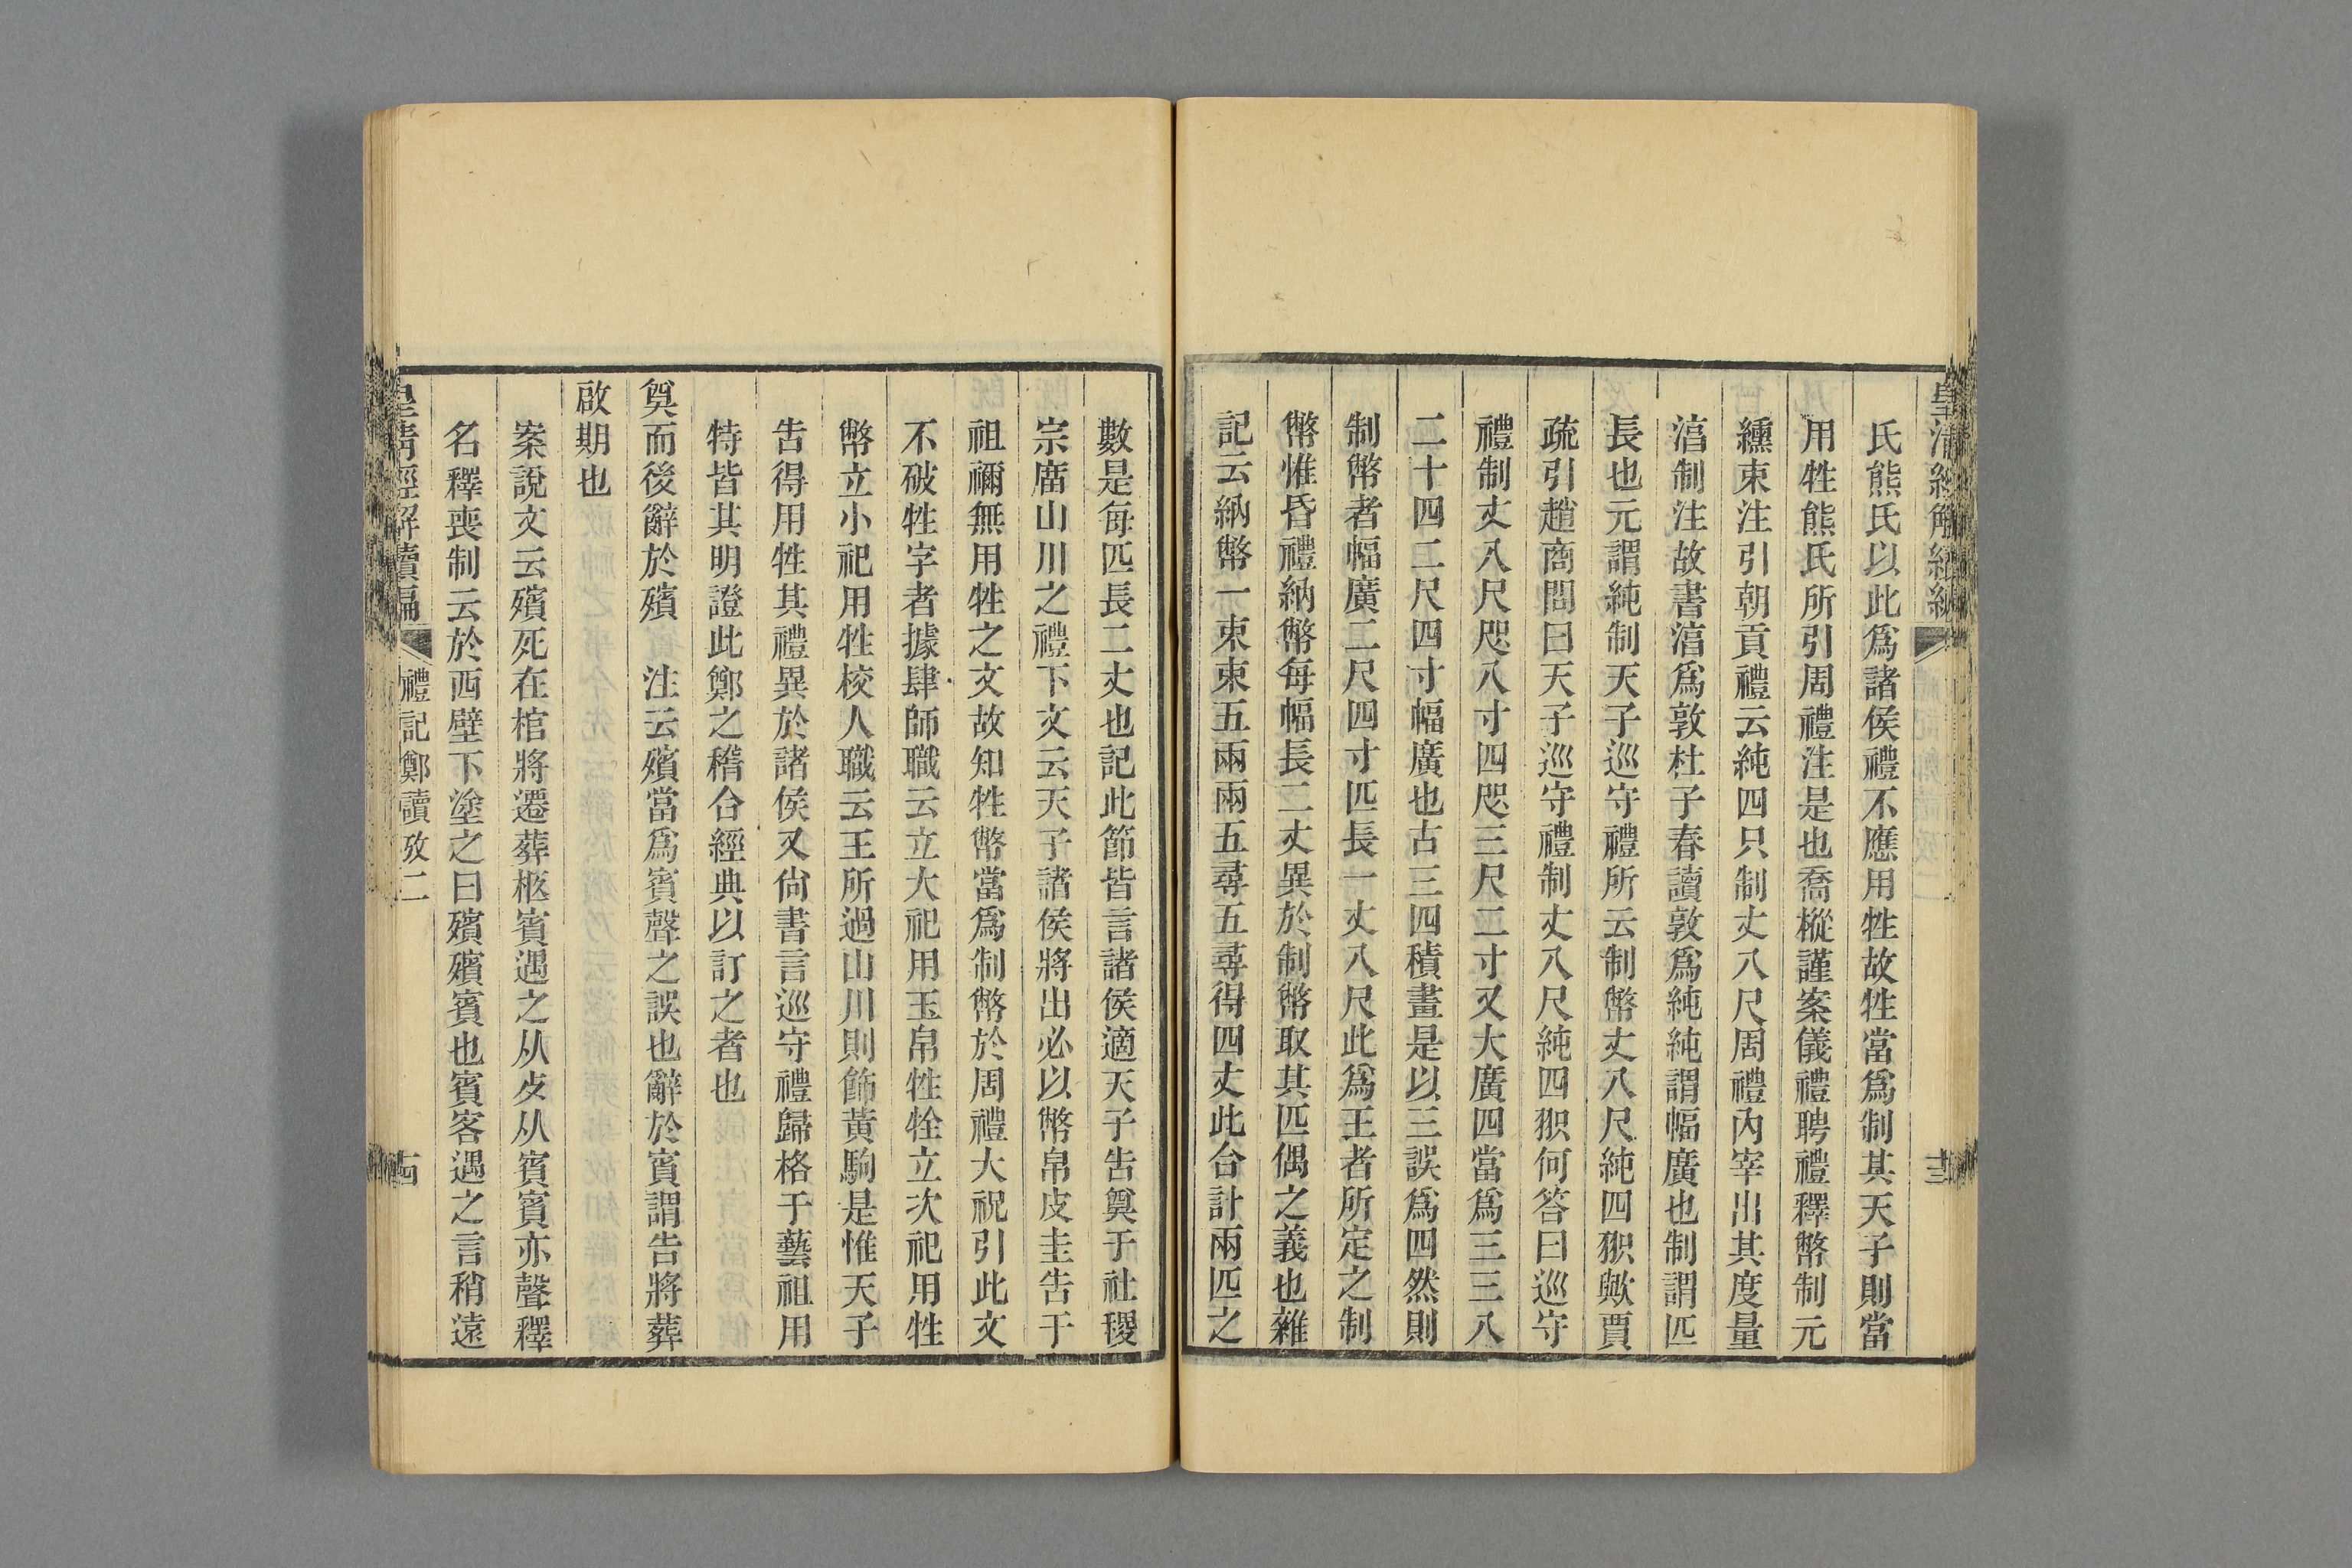 氏熊氏以此爲諸侯禮不應用牲故牲當爲制其天子則當
用牲熊氏所引周禮注是也喬樅謹案儀禮聘禮釋幣制元
纁束注引朝貢禮云純四只制丈八尺周禮內宰出其度量
淳制注故書淳爲敦杜子春讀敦爲純純謂幅廣也制謂匹
長也元謂純制天子巡守禮所云制幣丈八尺純四䏲歟賈
疏引趙商問曰天子巡守禮制丈八尺純四䏲何答曰巡守
禮制丈八尺咫八寸四咫三尺二寸又大廣四當爲三三八
二十四二尺四寸幅廣也古三四積畫是以三誤爲四然則
制幣者幅廣二尺四寸匹長一丈八尺此爲王者所定之制
幣惟昏禮納幣每幅長二丈異於制幣取其匹偶之義也雜
記云納幣一束束五兩兩五尋五尋得四丈此合計兩匹之
數是每匹長二丈也記此節皆言諸侯適天子告奠于社稷
宗廟山川之禮下文云天子諸侯將出必以幣帛皮圭告于
祖禰無用牲之文故知牲幣當爲制幣於周禮大祝引此文
不破牲字者據肆師職云立大祀用玉帛牲牷立次祀用牲
幣立小祀用牲校人職云王所過山川則飾黃駒是惟天子
告得用牲其禮異於諸侯又尙書言巡守禮歸格于藝祖用
特皆其明證此鄭之稽合經典以訂之者也
奠而後辭於殯　注云殯當爲賓聲之誤也辭於賓謂告將葬
啟期也
案說文云殯死在棺將遷葬柩賓遇之从歺从賓賓亦聲釋
名釋喪制云於西壁下塗之曰殯殯賓也賓客遇之言稍遠
皇清經解續編　禮記鄭讀攷二　十四